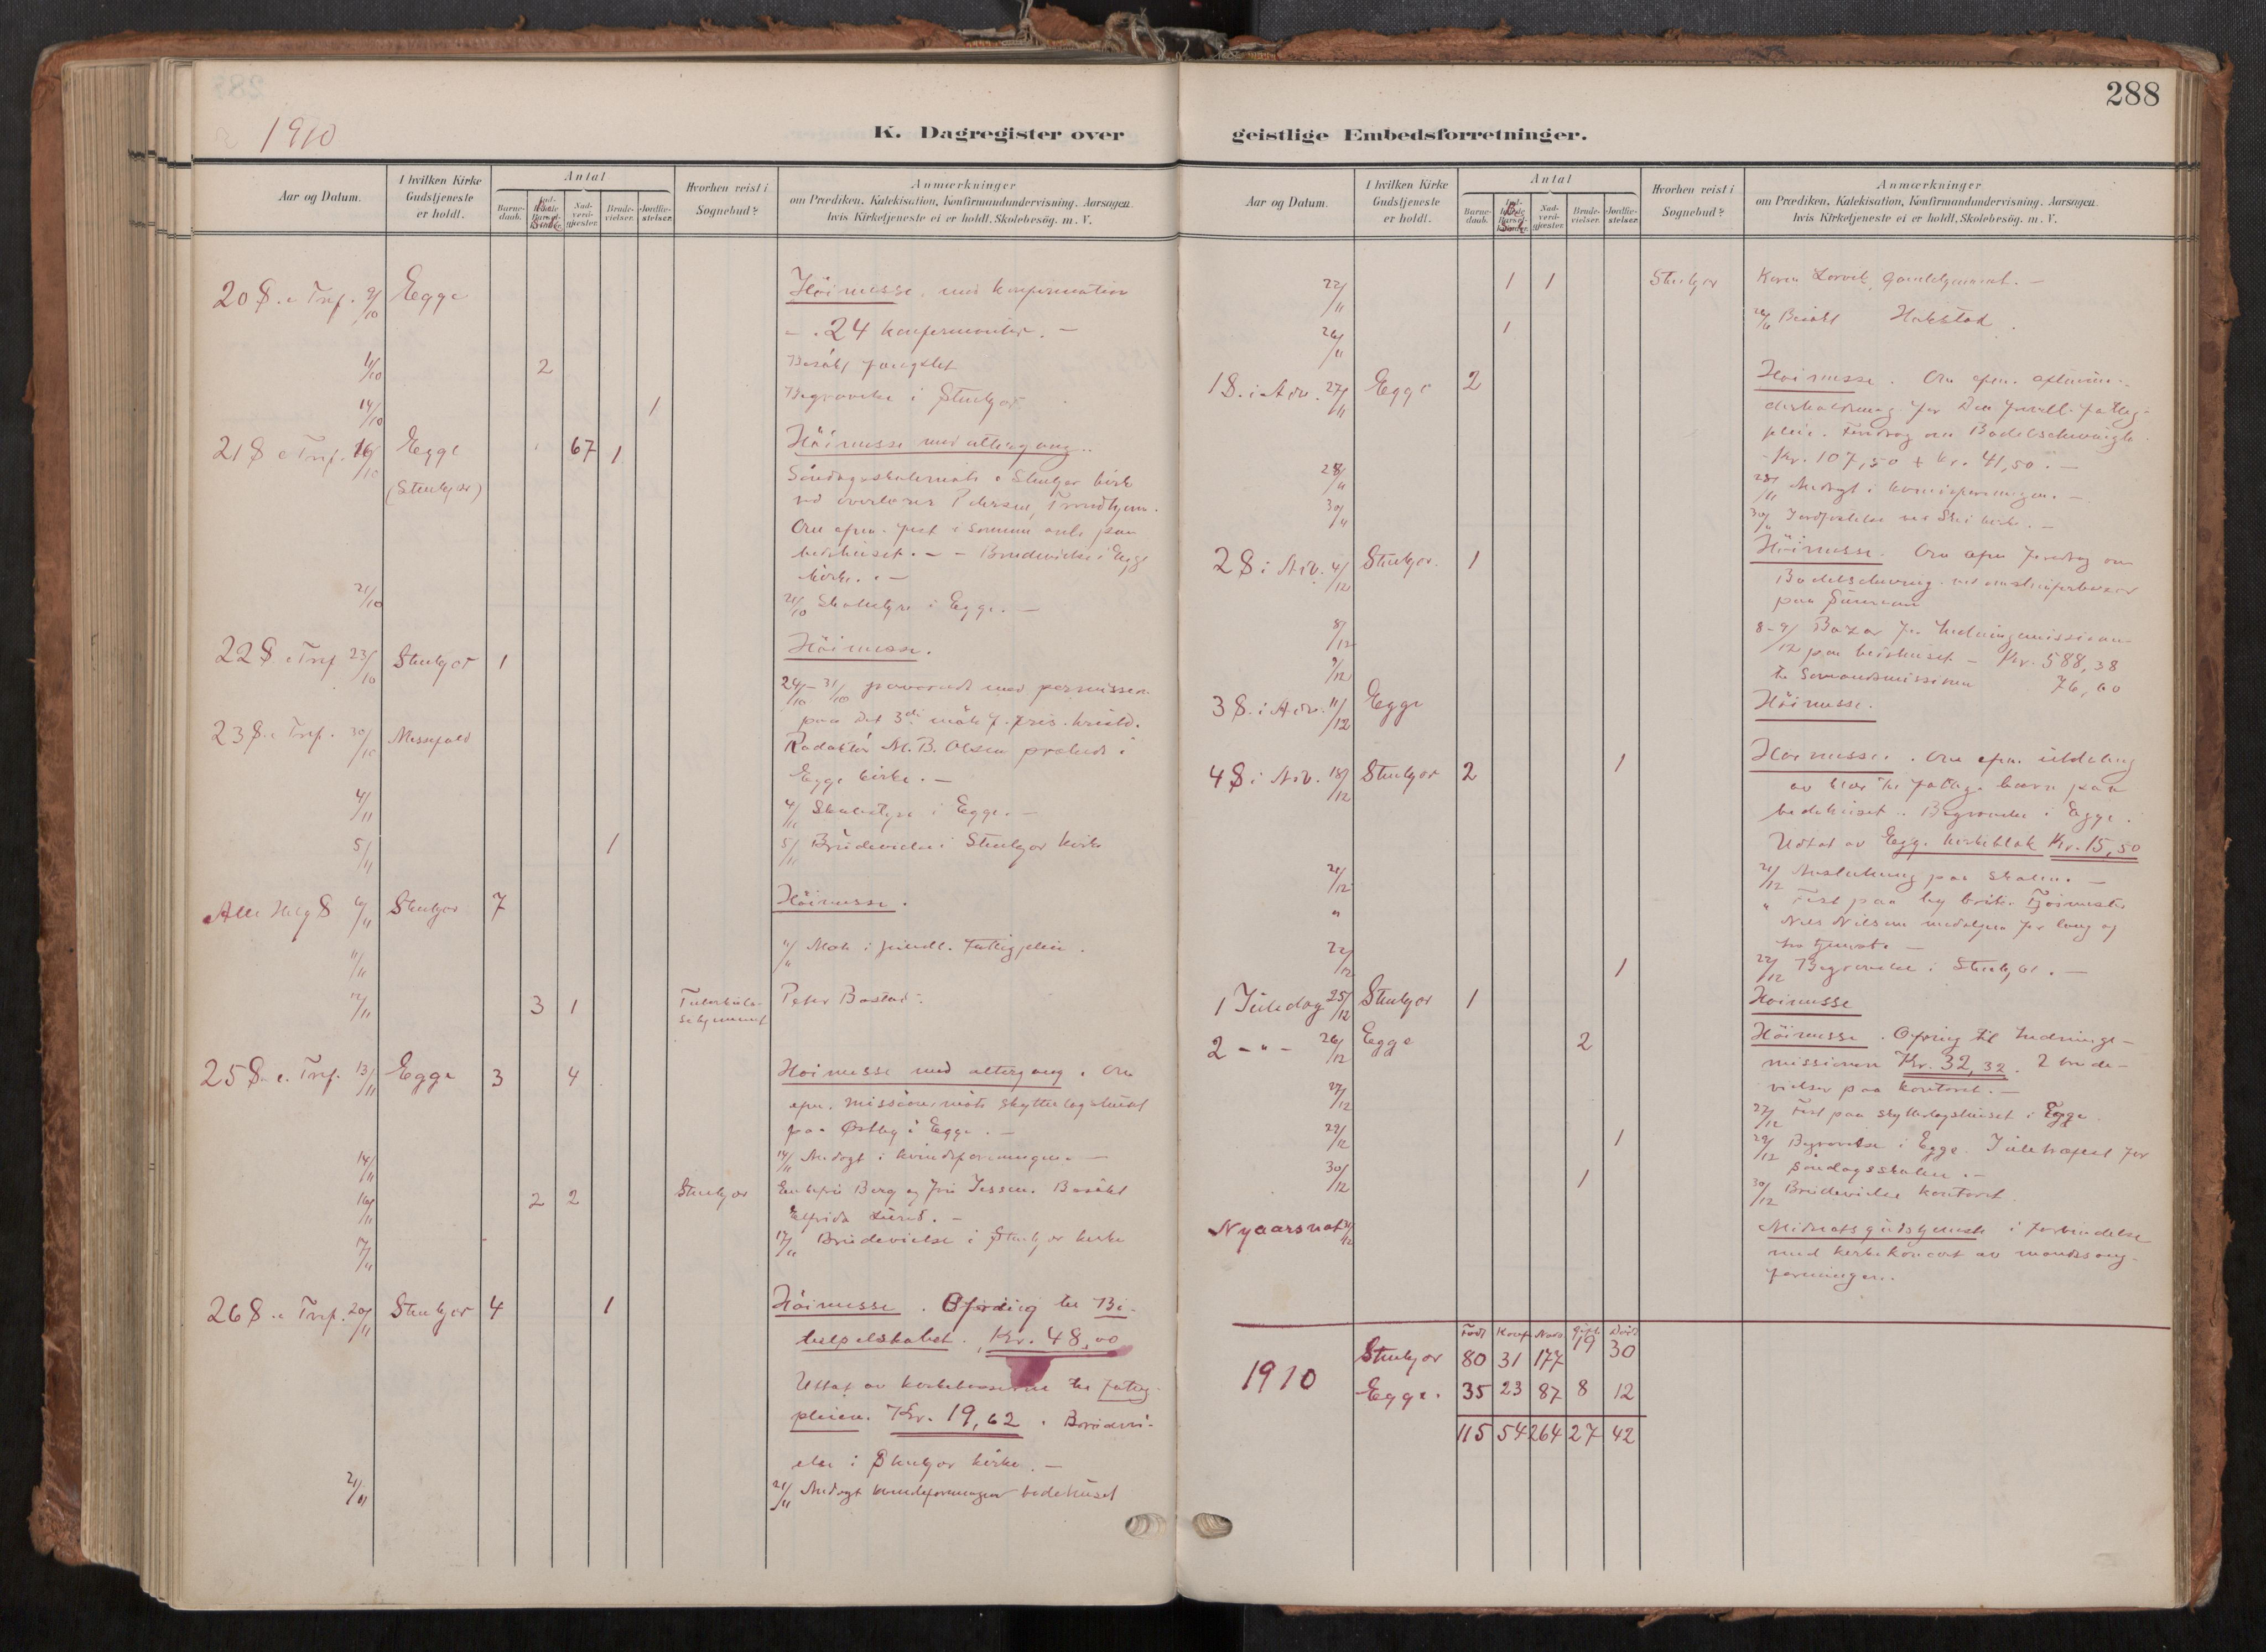 288
1910
K. Dagregister over geistlige Embedsforretninger.
Aar og Datum.
I hvilken Kirke Gudstjeneste er holdt.
Antal
Barne-daab.
Nad-verd-gjæster.
Brude-vielser.
Jordfæ-stelser.
Hvorhen reist i Sognebud?
Anmærkninger
om Prædiken, Katekisation, Konfirmandundervisning, Aarsagen
hvis Kirketjeneste ei er holdt, Skolebesøg. m. V.
20 S. e Tref. 9/10 Egge Höimesse med konfirmation
24 konfirmanter. —
11/10 2 Besökt fængslet
14/10 1 Begravelse i Stenkjær
21 S e Tref. 16/10 Egge 67 1 Höimesse med altergang.
(Stenkjær) Söndagsskolemöte i Stenkjær kirke
ved overlærer Petersen, Trondhjem.
Om efm. fest i samme anl. paa
bedehuset. — Brudevielse i Egge
kirke. —
21/10 21/10 Skolestyre i Egge. —
22 S. e Tref 23/10 Stenkjær 1 Höimesse.
24/10 - 31/10 fraværende med permission
paa det 3die möte f. fris. kristd.
23 S. e Tref. 30/10 Messefald Redaktör M. B. Olsen prækede i
Egge kirke. —
4/11 4/11 Skolestyre i Egge. —
5/11 1 5/11 Brudevielse i Stenkjær kirke
Alle Helg S 6/11 Stenkjær 7 Höimesse.
11/11 11/11 Möte i frivill. Fattigpleie.
12/11 3 1 Tuberkulosehjemmet Peter Bostad.
25 S. e. Tref. 13/11 Egge 3 4 Höimesse med altergang. Om
efm. missionsmöte skytterlagshuset
paa Østby i Egge. —
14/11 14/11 Andagt i kvindeforeningen —
16/11 2 2 Stenkjær Enkefru Berg og fru Jessen. Besökt
Elfrida Lund. —
17/11 17/11 Brudevielse i Stenkjær kirke
26 S. e Tref. 20/11 Stenkjær 4 1 Höimesse. Ofring til Bi-
belselskabet. Kr. 48,00
Uttat av kirkebøsserne til fattig-
pleien. Kr. 19,62. Brudevi-
else i Stenkjær kirke. —
21/11 21/11 Andagt kvindeforeningen bedehuset
Aar og Datum.
I hvilken Kirke Gudstjeneste er holdt.
Antal
Barne-daab.
Nad-verd-gjæster.
Brude-vielser.
Jordfæ-stelser.
Hvorhen reist i Sognebud?
Anmærkninger
om Prædiken, Katekisation, Konfirmandundervisning, Aarsagen
hvis Kirketjeneste ei er holdt, Skolebesøg. m. V.
22/11 1 1 Stenkjær Karen Gamlehjemmet. —
26/11 1 26/11 Besökt Hakstad.
1 S. i Adv. 27/11 Egge 2 Höimesse. Om efm.
for den frivill. fattig-
pleie. Foredrag om Bodelschwingh.
Kr. 107,50 + kr. 41,50. —
28/11 28/11 Andagt i kvindeforeningen. —
30/11 30/11 Jordfæstelse ved kirke. —
2 S i Adv. 4/12 Stenkjær. 1 Höimesse. Om efm foredrag om
Bodelschwing
paa Sannan
8/12 8-9/12 Bazar for Indremissionen
9/12 paa bedehuset — Kr. 588,38
til Sømandsmissionen 76,60
3 S. i Adv. 11/12 Egge Höimesse.
4 S i Adv. 18/12 Stenkjær 2 1 Höimesse. Om efm. utdeling
av klær til fattige barn paa
bedehuset. Begravelse i Egge.
Udtat av Egge kirkeblok Kr. 15,50
21/12 21/12 Avslutning paa skolen. —
" " Fest paa By bruk. Fjösmester
Nils Nilsen medaljen for lang og
tro tjeneste —
22/12 1 22/12 Begravelse i Stenkjær. —
1 Juledag 25/12 Stenkjær 1 Höimesse
2 — " — 26/12 Egge 2 Höimesse. Ofring til Indre-
missionen Kr. 32,32. 2 brude-
vielser paa kontoret. —
27/12 27/12 Fest paa skytterlagshuset i Egge.
29/12 1 29/12 Begravelse i Egge. Juletræfest for
söndagsskolen. —
30/12 1 30/12 Brudevielse kontoret
Nyaarsnat 31/12 Midnatsgudstjeneste i forbindelse
med kirkekoncert av mandssang-
foreningen.
Födt Konf Nadv Gift. Död
1910 Stenkjær 80 31 177 19 30
Egge. 35 23 87 8 12
115 54 264 27 42